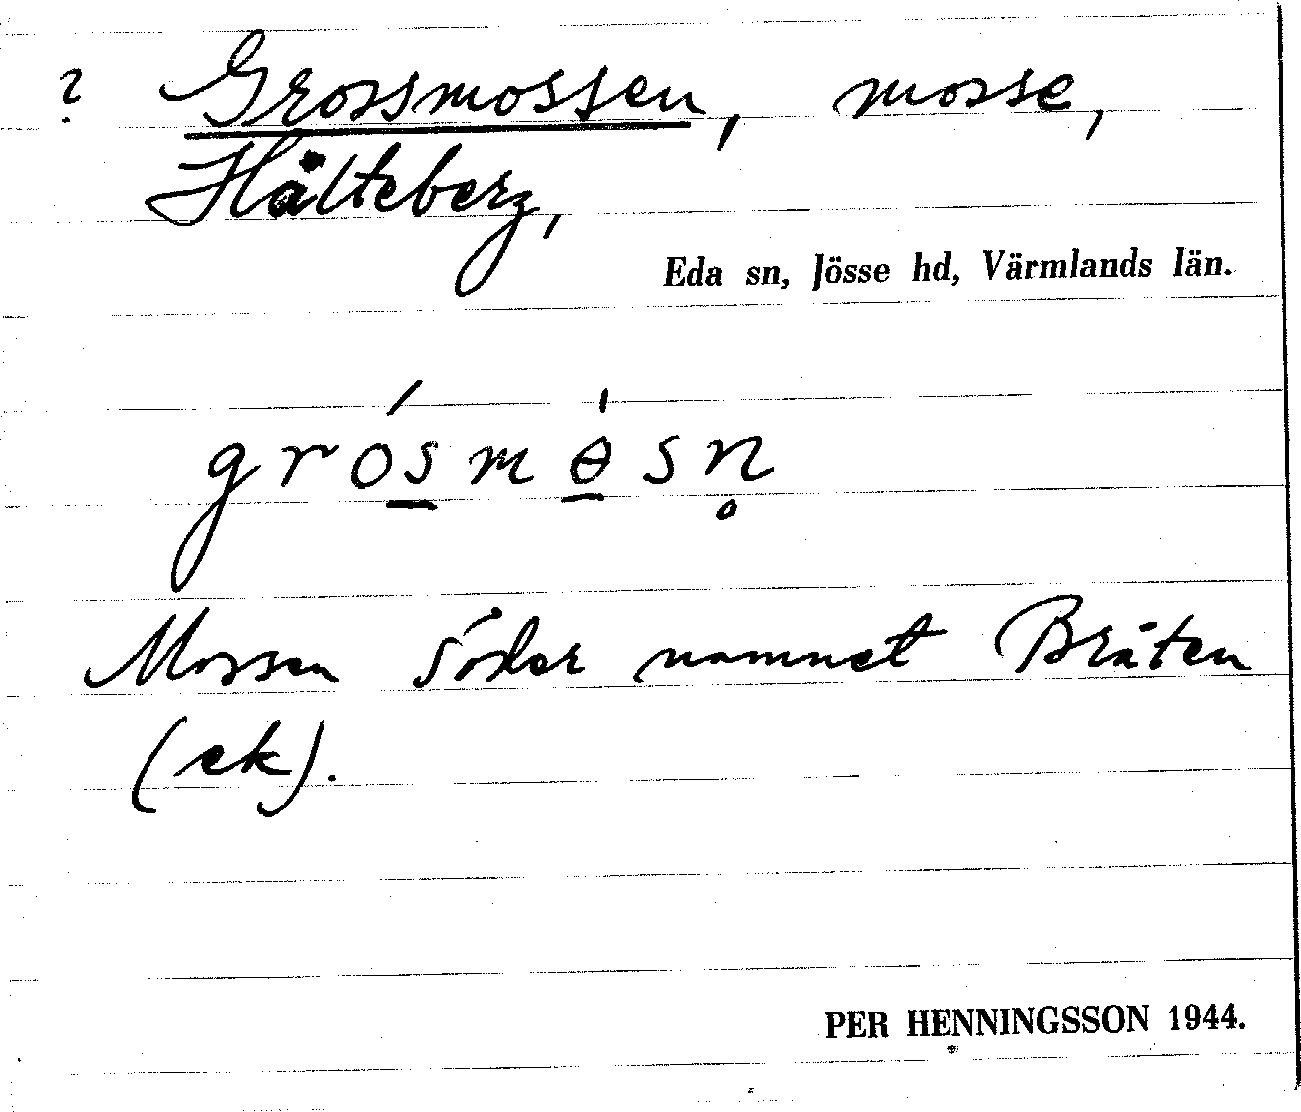 ? Grossmossen, mosse,
Hälteberg,
Eda sn, Jösse hd, Värmlands län.
grósmɵ̀sn̥
Mossen söder namnet Bråten
(ek).
PER HENNINGSSON 1944.